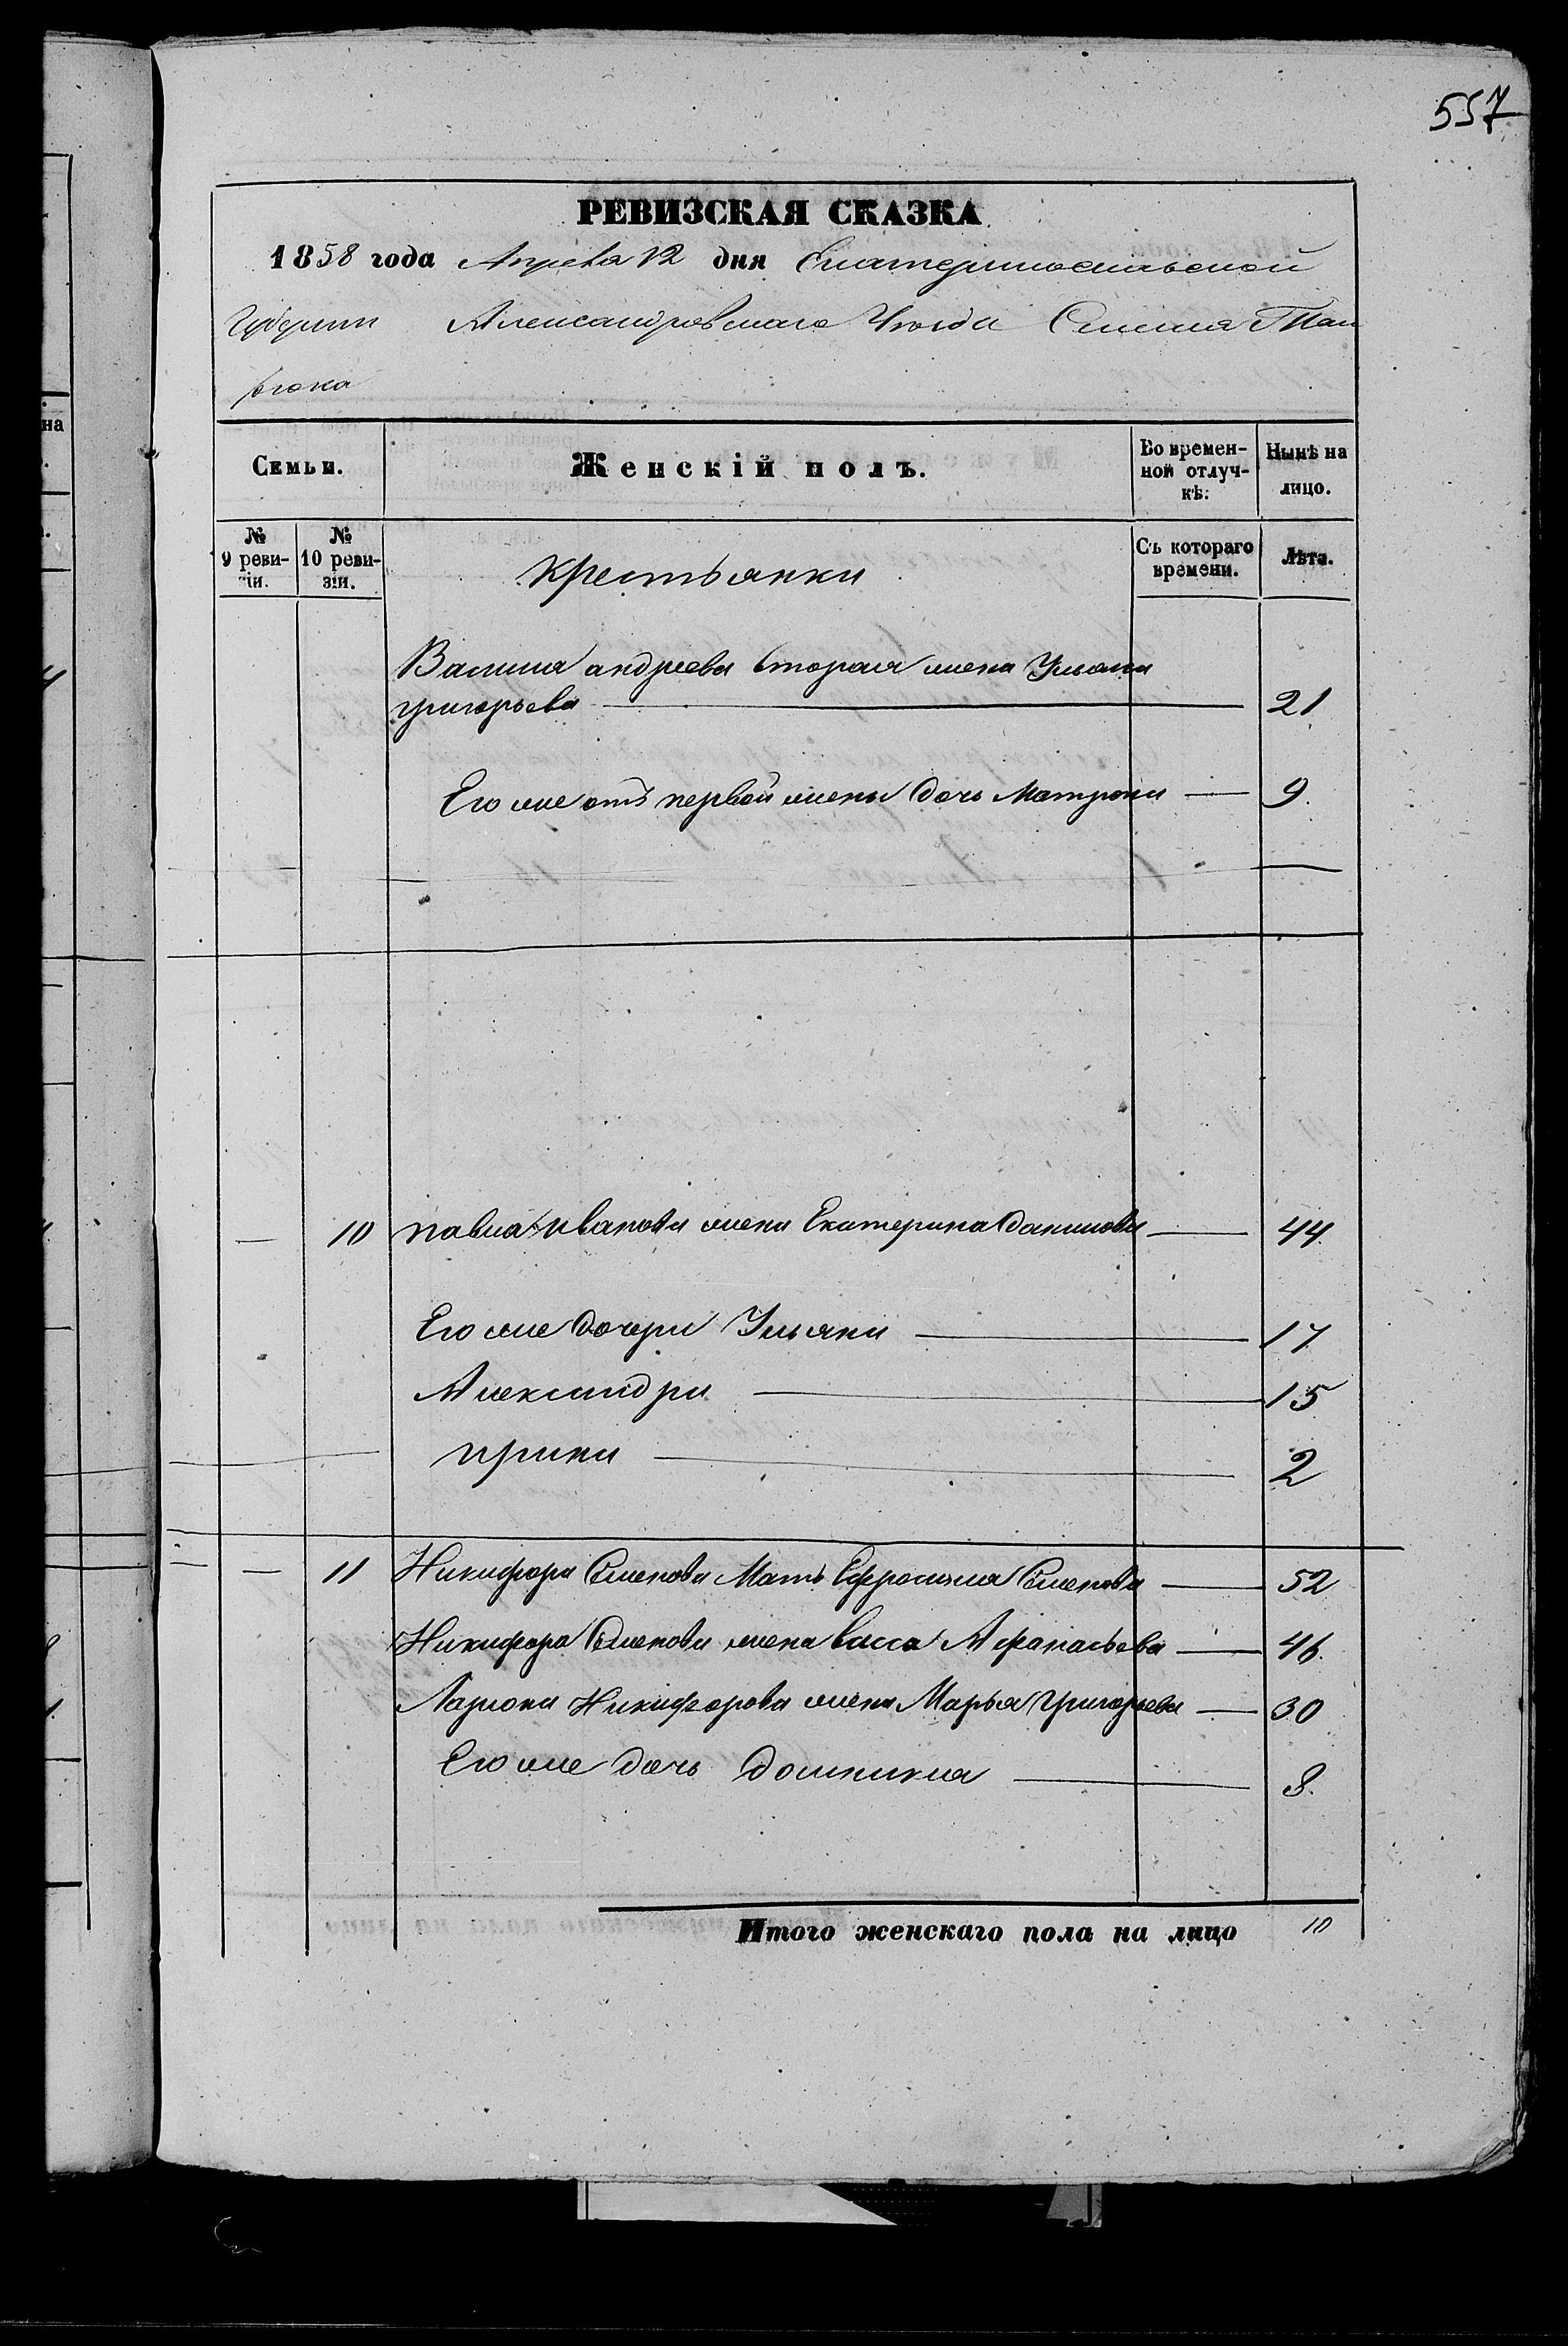 557
РЕВИЗСКАЯ СКАЗКА
1858 года Апреля 12 дня Екатеринославской
Губернии Александровскаго Уезда
Семьи. Женскій полъ. Во времен-ной отлуч-кѣ: Нынѣ на лицо.
№ 9 реви-зіи. № 10 реви-зіи. крестьянки Съ котораго времени. Лѣта.
андреева вторая жена Ульяна
григорьева 21
Его же отъ первой жены дочь Матрона 9.
— 10 павла иванова жена Екатерина данилова 44
Его же дочери Ульяна 17
Александра 15
ирина 2
— 11 Никифора Семенова Мать Ефросинья Семенова 52
Никифора Семенова жена васса Афанасьева 46.
Лариона Никифорова жена Марья григорьева 30
Его же дочь домникия 8.
Итого женскаго пола на лицо 10